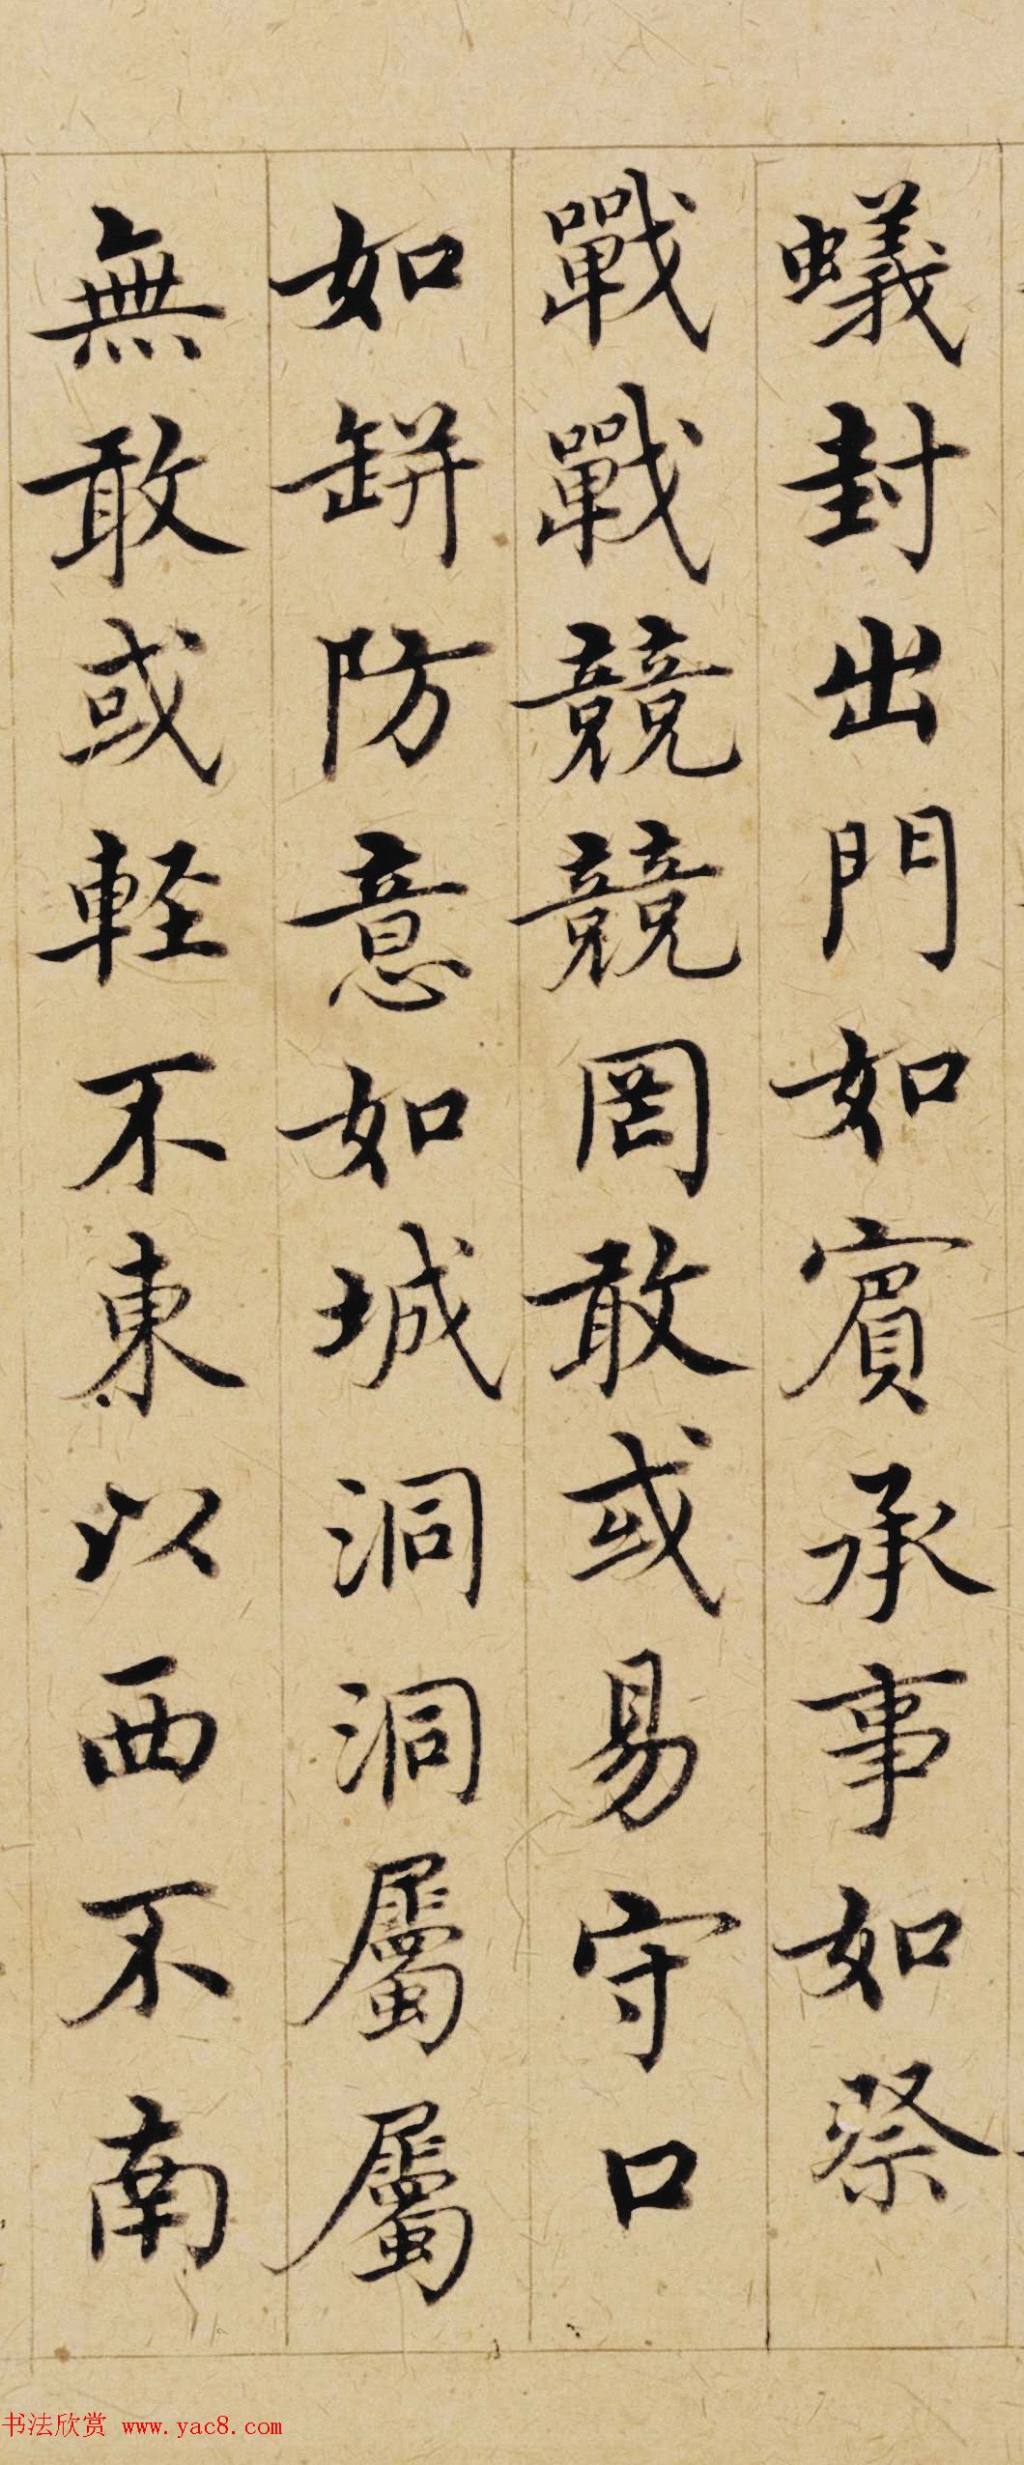 蟻封出門如賓承事如祭
戰戰競競罔敢或易守口
如缾防意如城洞洞屬屬
無敢或軽不東以西不南
书法欣赏 www.yac8.com